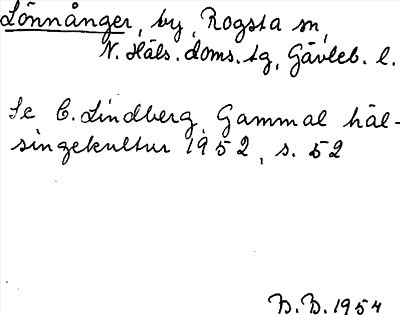 Lönnånger, by, Rogsta sn,
N. Häls. doms. tg, Gävleb. l.
Se C. Lindberg, Gammal häl-
singekultur 1952, s. 52
B.B. 1954